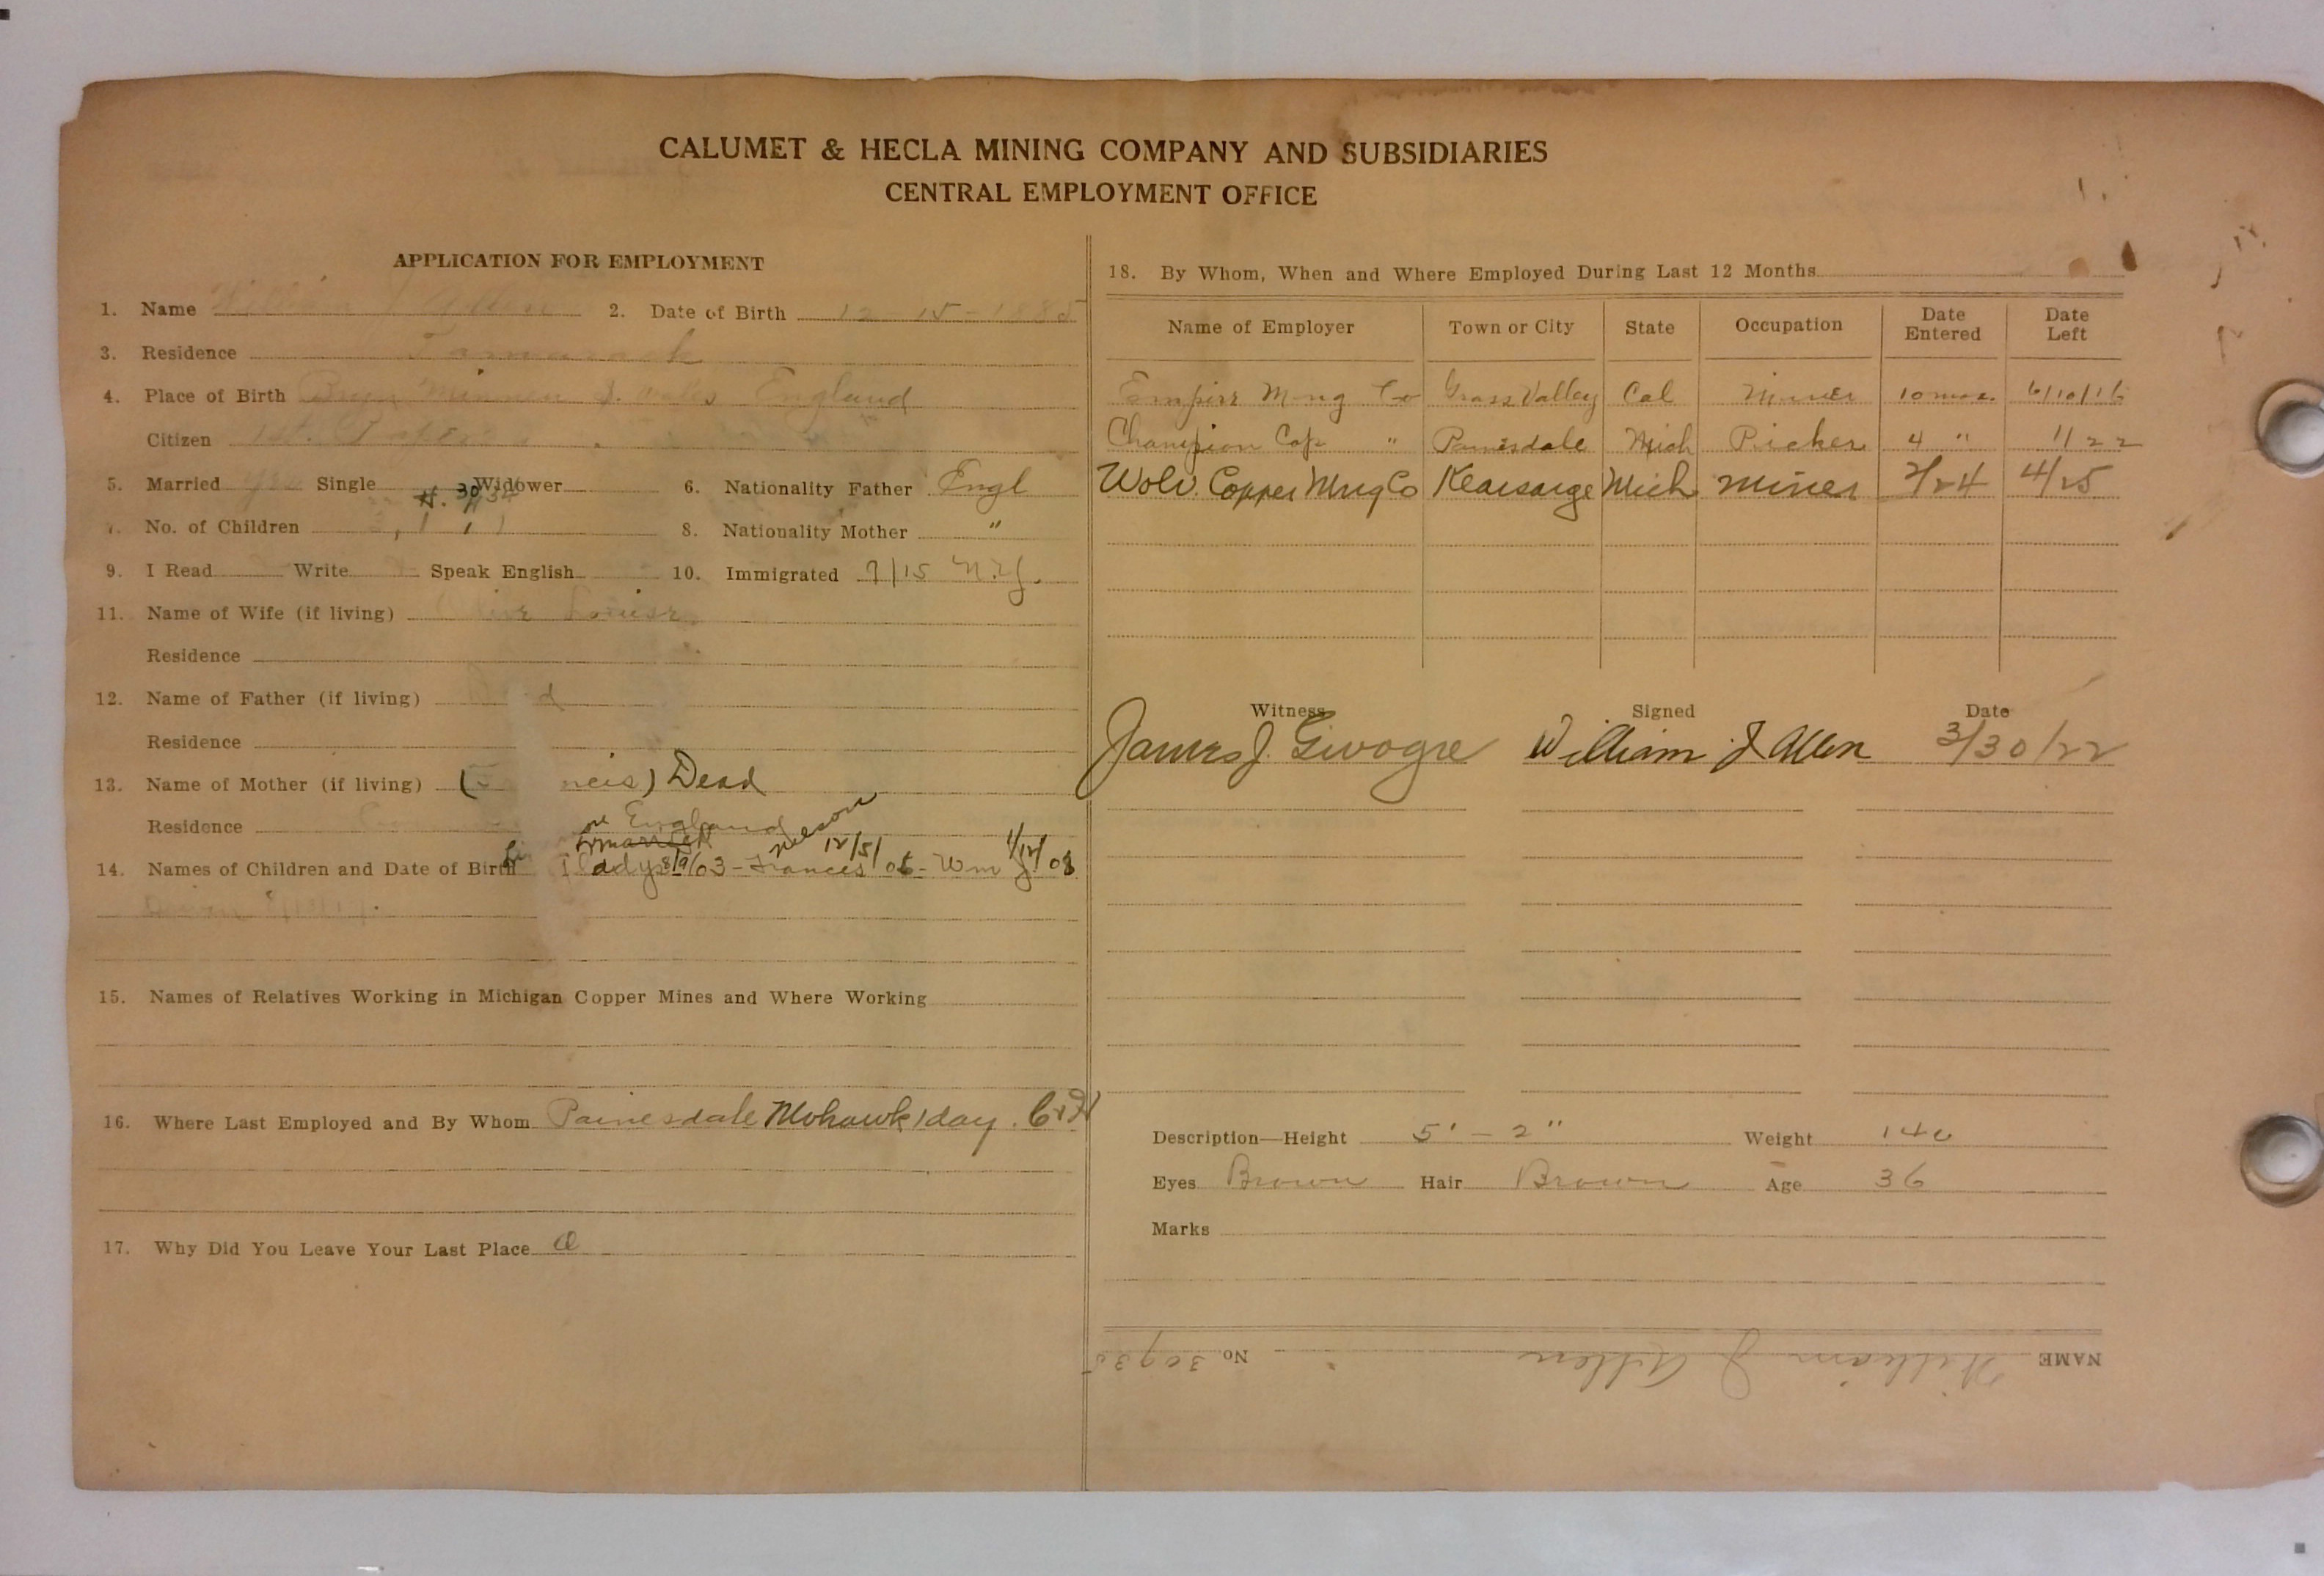 CALUMET & HECLA MINING COMPANY AND SUBSIDIARIES
CENTRAL EMPLOYMENT OFFICE
APPLICATION FOR EMPLOYMENT
1. Name William J Allen 2. Date of Birth 12 - 15 - 1885
3. Residence Tamarack
4. Place of Birth England
Citizen
5. Married Yes Single Widower 6. Nationality Father Engl
7. No. of Children 8. Nationality Mother "
9. I Read Write Speak English 10. Immigrated 7/15 N.Y.
11. Name of Wife (if living) Louise
Residence
12. Name of Father (if living)
Residence
13. Name of Mother (if living) Dead
Residence England
married Nelson
14. Names of Children and Date of Birth Gladys 8/9/03 - Frances 12/5/06 - Wm J 1/12/08
15. Names of Relatives Working in Michigan Copper Mines and Where Working
16. Where Last Employed and By Whom Painesdale Mohawk 1 day. C+H
17. Why Did You Leave Your Last Place
18. By Whom, When and Where Employed During Last 12 Months
Name of Employer Town or City State Occupation Date Entered Date Left
Empire Mng Co Grass Valley Cal Miner 10 mos. 6/10/16
Champion Cop " Painesdale Mich Picker 4 " 1/22
Wolv. Copper Mng Co Kearsarge Mich Miner 2/24 4/25
Witness Signed Date
James J. William J Allen 3/30/22
Description—Height 5' - 2" Weight 140
Eyes Brown Hair Brown Age 36
Marks
NAME William J Allen No 30935